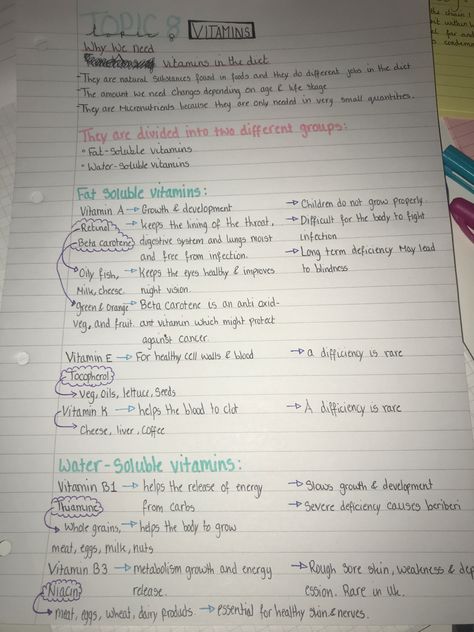 TOPIC 8
topic 8 VITAMINS
Why We need
vitamins in the diet
- They are natural substances found in foods and they do different jobs in the diet
- The amount we need changes depending on age & life stage
- They are Micronutrients because they are only needed in very small quantities.
They are divided into two different groups:
• Fat-Soluble vitamins
• Water-Soluble vitamins
Fat Soluble vitamins:
Vitamin A → Growth & development → Children do not grow properly
Retinol → keeps the lining of the throat, → Difficult for the body to fight
Beta carotene digestive system and lungs moist infection
and free from infection. → Long term deficiency May lead
Oily fish, → Keeps the eyes healthy & improves to blindness.
Milk, cheese. night vision.
Green & orange → Beta carotene is an anti oxid-
veg, and fruit. ant vitamin which might protect
against cancer.
Vitamin E → For healthy cell walls & blood → a difficiency is rare
Tocopherol
→ Veg, oils, lettuce, seeds
Vitamin K → helps the blood to clot → A difficiency is rare
→ Cheese, liver, coffee
Water-Soluble vitamins:
Vitamin B1 → helps the release of energy → Slows growth & development
Thiamine from carbs → Severe deficiency causes beriberi
→ Whole grains, → helps the body to grow
meat, eggs, milk, nuts
Vitamin B3 → metabolism growth and energy → Rough sore skin, weakness & dep
Niacin release. ession. Rare in Uk.
→ meat, eggs, wheat, dairy products. → essential for healthy skin & nerves.